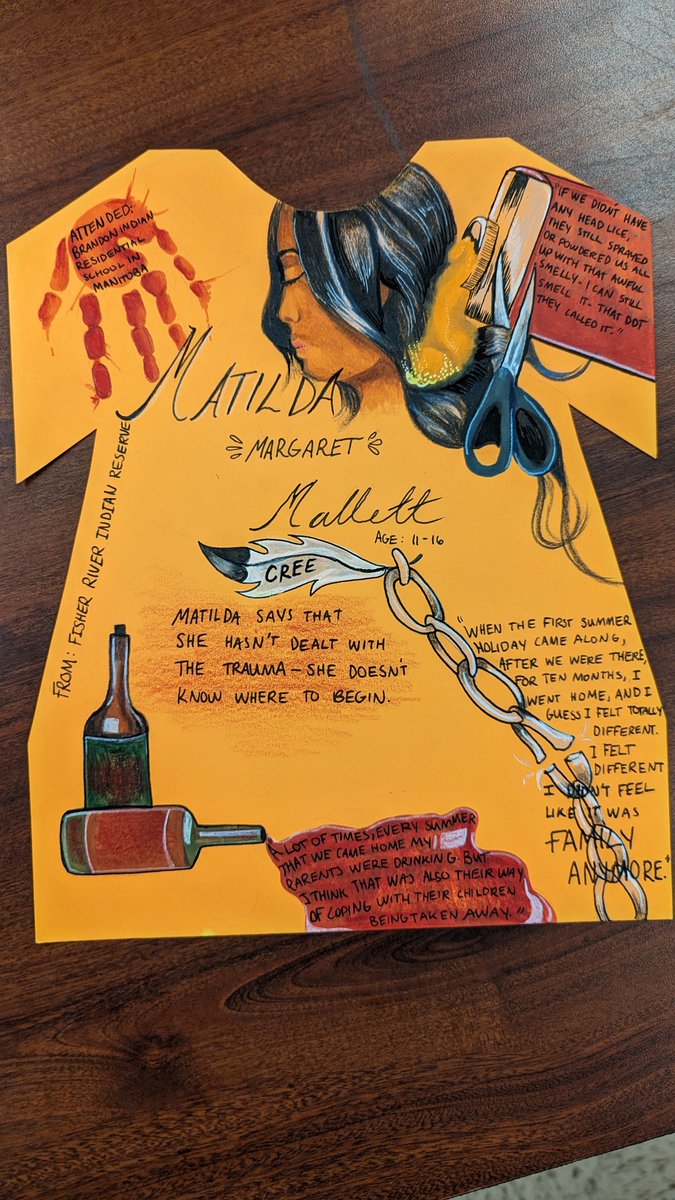 ATTENDED:
BRANDON INDIAN
RESIDENTIAL
SCHOOL IN
MANITOBA
"IF WE DIDNT HAVE
ANY HEAD LICE,
THEY STILL SPRAYED
OR POWDERED US ALL
UP WITH THAT AWFUL
SMELLY - I CAN STILL
SMELL IT - THAT DDT
THEY CALLED IT."
MATILDA
MARGARET
Mallett
AGE: 11-16
FROM: FISHER RIVER INDIAN RESERVE
CREE
MATILDA SAYS THAT
SHE HASN'T DEALT WITH
THE TRAUMA - SHE DOESN'T
KNOW WHERE TO BEGIN.
"WHEN THE FIRST SUMMER
HOLIDAY CAME ALONG,
AFTER WE WERE THERE,
FOR TEN MONTHS, I
WENT HOME, AND I
GUESS I FELT TOTALLY
DIFFERENT.
I FELT
DIFFERENT
I DIDN'T FEEL
LIKE IT WAS
FAMILY
ANYMORE."
A LOT OF TIMES, EVERY SUMMER
THAT WE CAME HOME MY
PARENTS WERE DRINKING. BUT
I THINK THAT WAS ALSO THEIR WAY
OF COPING WITH THEIR CHILDREN
BEING TAKEN AWAY."